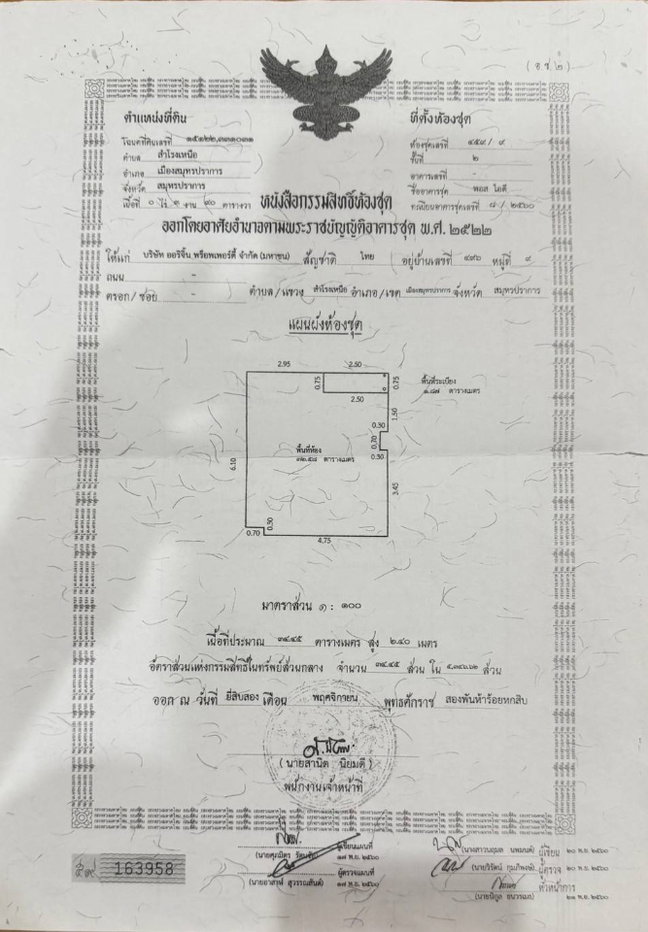 ( อ.ช.๒ )
ตำแหน่งที่ดิน
ที่ตั้งห้องชุด
โฉนดที่ดินเลขที่
ห้องชุดเลขที่ ๔๕๙/๙
ตำบล สำโรงเหนือ
ชั้นที่ ๒
อำเภอ เมืองสมุทรปราการ
อาคารเลขที่ -
จังหวัด สมุทรปราการ
ชื่ออาคารชุด พอส ไอดี
เนื้อที่ ๐ ไร่ ๓ งาน ๙๐ ตารางวา
ทะเบียนอาคารชุดเลขที่ ๘/๒๕๖๐
หนังสือกรรมสิทธิ์ห้องชุด
ออกโดยอาศัยอำนาจตามพระราชบัญญัติอาคารชุด พ.ศ. ๒๕๒๒
ให้แก่ บริษัท ออริจิ้น พร็อพเพอร์ตี้ จำกัด (มหาชน) สัญชาติ ไทย อยู่บ้านเลขที่ ๔๙๖ หมู่ที่ ๙
ถนน -
ตรอก/ซอย - ตำบล/แขวง สำโรงเหนือ อำเภอ/เขต เมืองสมุทรปราการ จังหวัด สมุทรปราการ
แผนผังห้องชุด
2.95 2.50
0.75 0.75
พื้นที่ระเบียง
๑.๘๗ ตารางเมตร
2.50
1.50
0.30
0.70
พื้นที่ห้อง
๓๒.๕๘ ตารางเมตร
0.30
6.10
3.45
0.30
0.70
4.75
มาตราส่วน ๑ : ๑๐๐
เนื้อที่ประมาณ ๓๔.๔๕ ตารางเมตร สูง ๒.๔๐ เมตร
อัตราส่วนแห่งกรรมสิทธิ์ในทรัพย์ส่วนกลาง จำนวน ๓๔.๔๕ ส่วน ใน ส่วน
ออก ณ วันที่ ยี่สิบสอง เดือน พฤศจิกายน พุทธศักราช สองพันห้าร้อยหกสิบ
(นายสานิต นิยมดี)
พนักงานเจ้าหน้าที่
ผู้เขียนแผนที่
๑๗ พ.ย. ๒๕๖๐
ผู้ตรวจแผนที่
(นายอาสาฬ์ สุวรรณสันต์) ๑๗ พ.ย. ๒๕๖๐
ผู้เขียน ๒๐ พ.ย. ๒๕๖๐
ผู้ตรวจ ๒๐ พ.ย. ๒๕๖๐
หัวหน้าการ
๒๑ พ.ย. ๒๕๖๐
163958